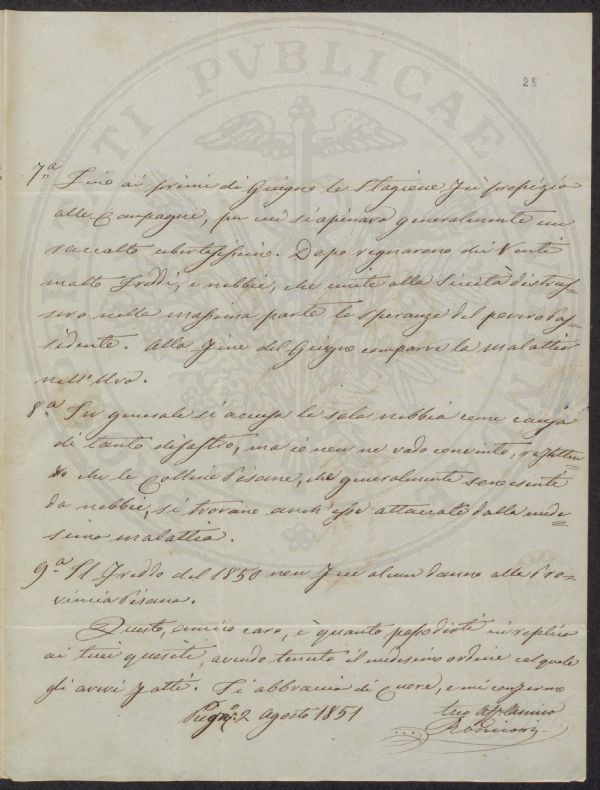 28
7.a Sino ai primi di Giugno la Stagione fu propizia
alle Campagne, per cui si sperava generalmente un
raccolto ubertosissimo. Dopo regnarono dei Venti
molto freddi, e nebbie, che unite alla Siccità distrus=
sero nella massima parte le speranze del povero Pos=
sidente. Alla fine del Giugno comparve la malattia
nell'Uva.
8.a In generale si accusa la sola nebbia come causa
di tanto disastro, ma io non ne vado convinto, rifletten=
do che le Colline Pisane, che generalmente sono esenti
da nebbie, si trovano anch'esse attaccate dalla mede=
sima malattia.
9.a Il freddo del 1850 non fece alcun danno alla Pro=
vincia Pisana.
Questo, amico caro, è quanto posso dirti in replica
ai tuoi quesiti, avendo tenuto il medesimo ordine col quale
gli avevi fatti. Ti abbraccio di Cuore, e mi confermo
2 Agosto 1851
tuo Aff. Amico
PVBLICAE